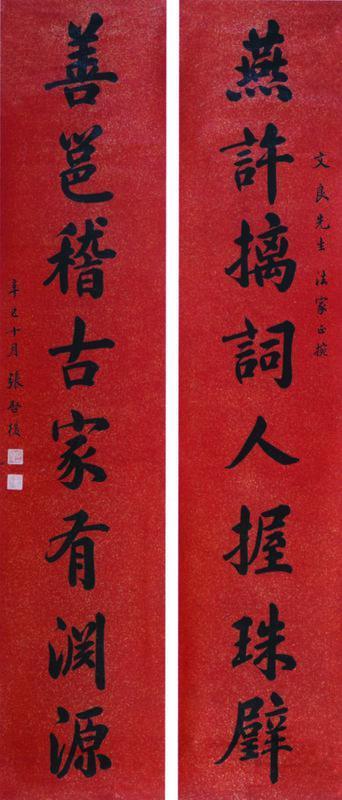 燕許摛詞人握珠璧
文良先生 法家正腕
善邕稽古家有渊源
辛巳十月 張啓後